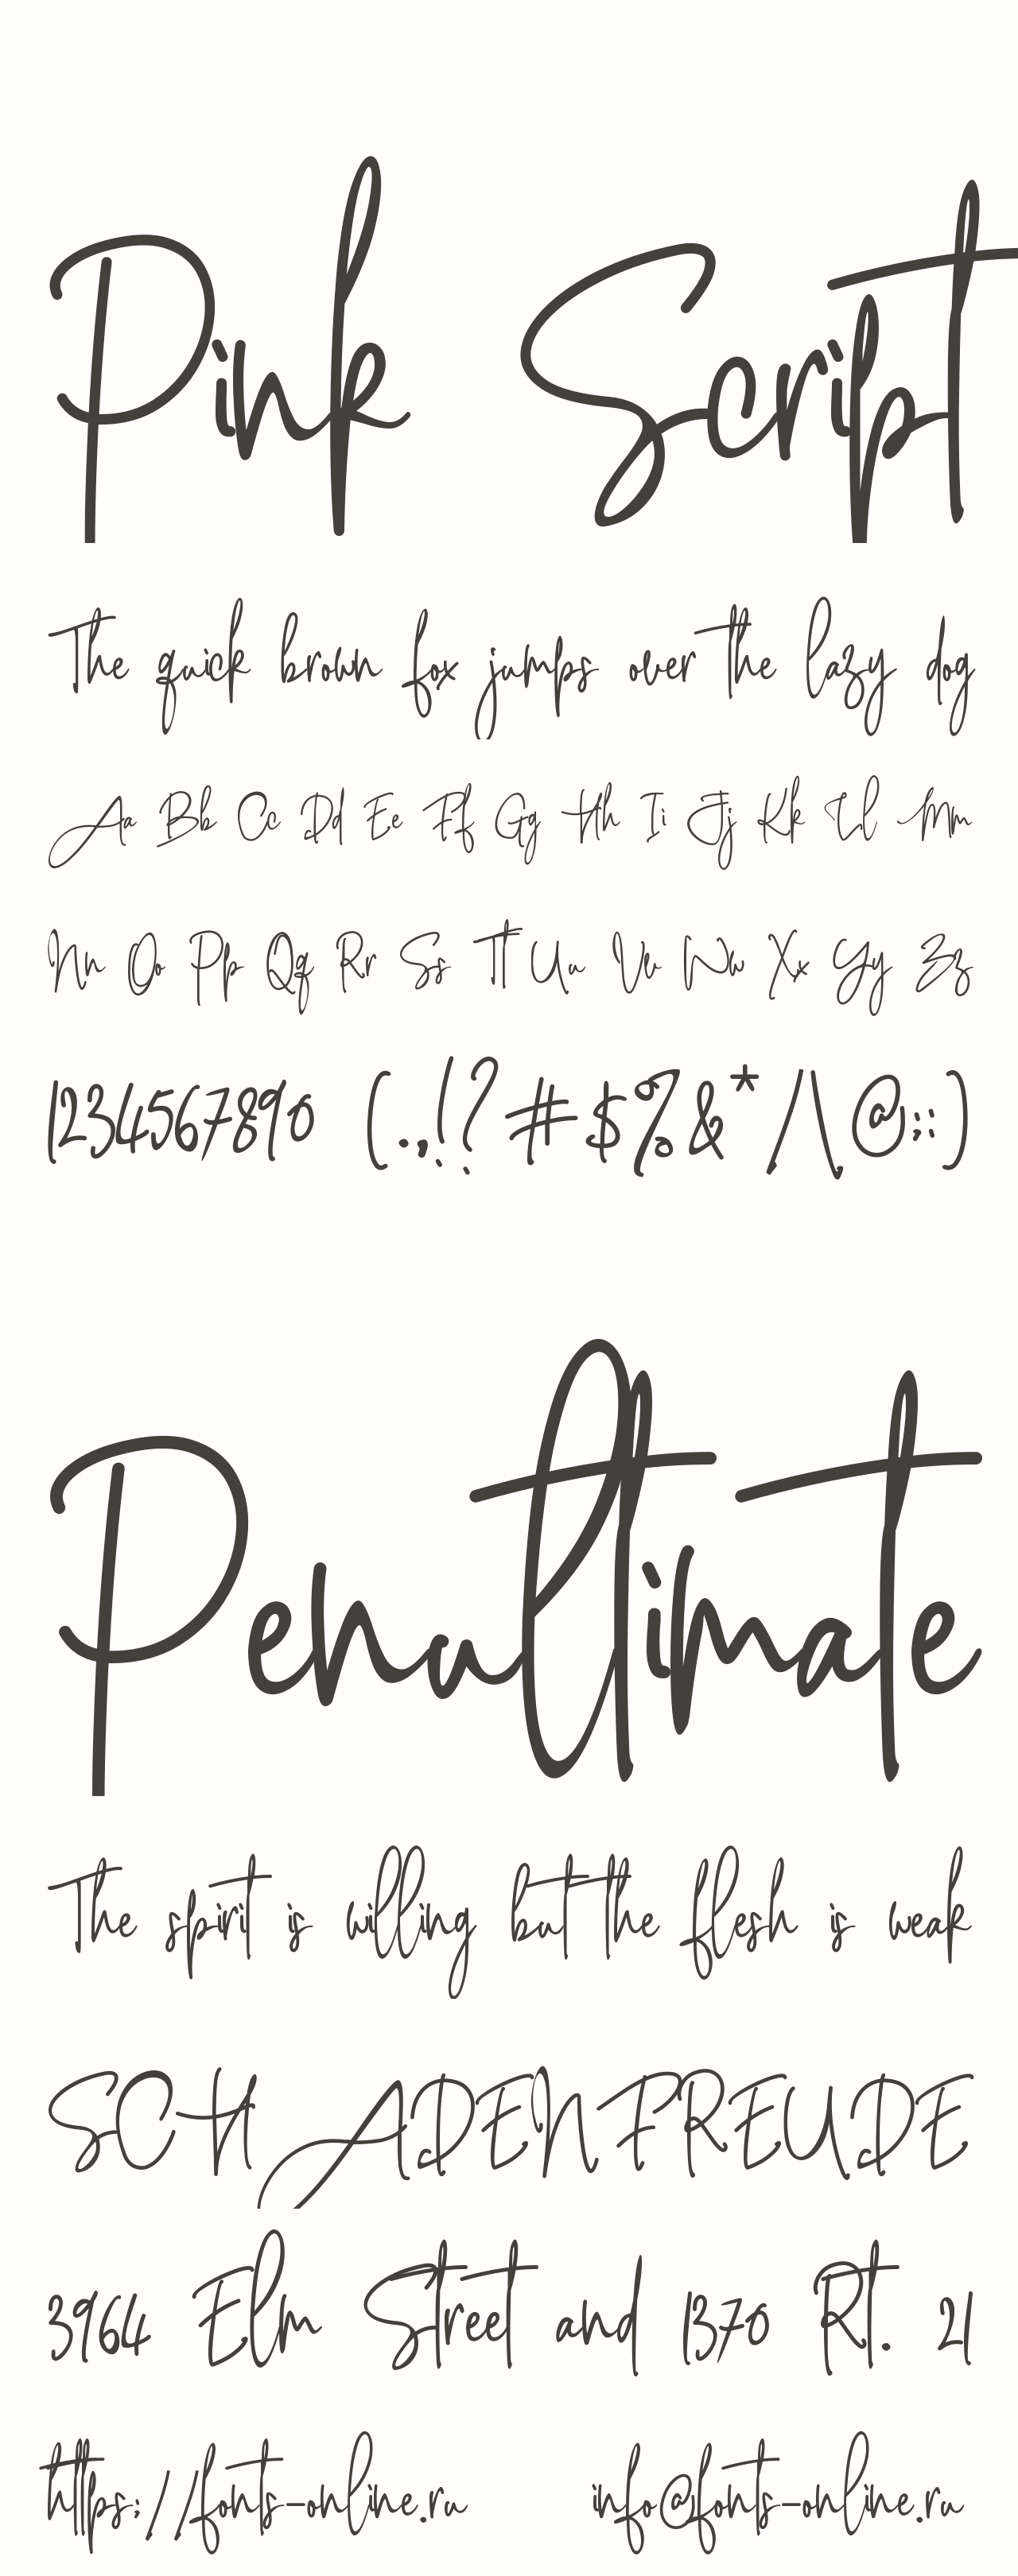 Pink Script
The quick brown fox jumps over the lazy dog
Aa Bb Cc Dd Ee Ff Gg Hh Ii Jj Kk Ll Mm
Nn Oo Pp Qq Rr Ss Tt Uu Vv Ww Xx Yy Zz
1234567890 (.,!?#$%&*/\@;:)
Penultimate
The spirit is willing but the flesh is weak
SCHADENFREUDE
3964 Elm Street and 1370 Rt. 21
https://fonts-online.ru info@fonts-online.ru